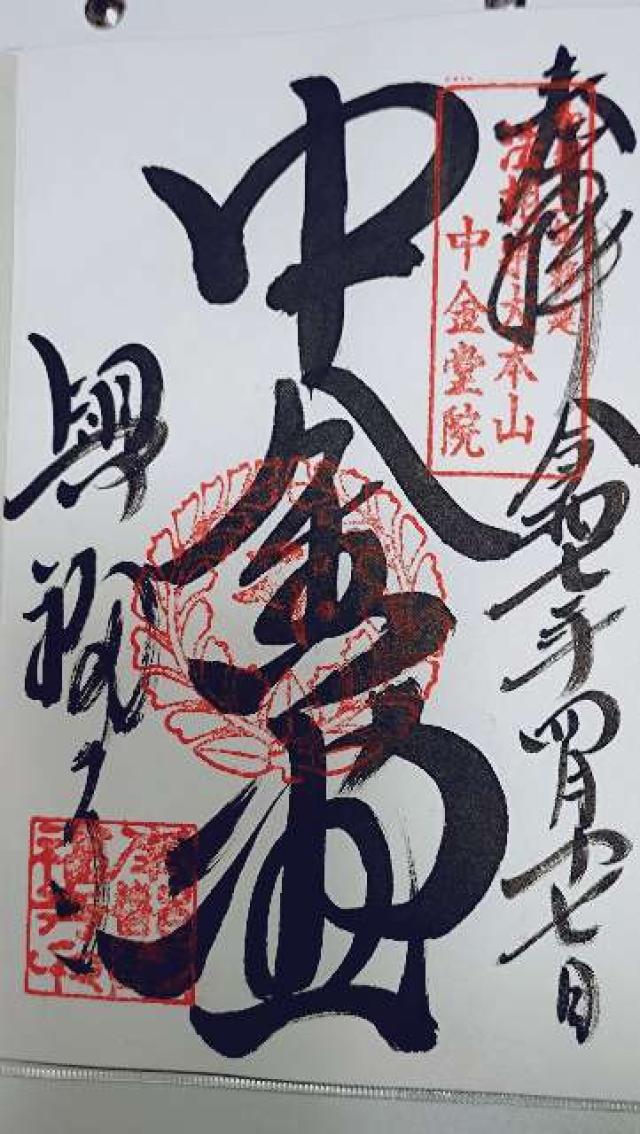 奉拝
令和七年四月十七日
本山
中金堂院
中金堂
興福寺